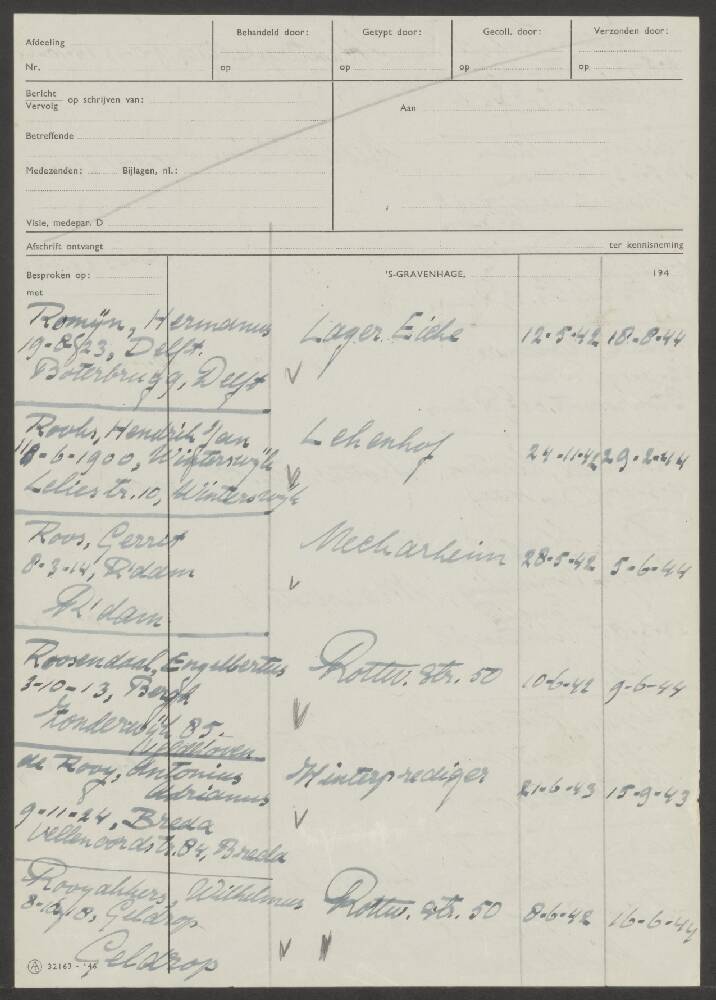 Afdeeling
Nr.
Behandeld door:
op
Getypt door:
op
Gecoll. door:
op
Verzonden door:
op
Bericht
Vervolg op schrijven van:
Betreffende
Medezenden: Bijlagen, nl.:
Visie, medepar. D
Aan
Afschrift ontvangt ter kennisneming
Besproken op:
met
'S-GRAVENHAGE, 194
Romijn, Hermanus Lager Eiche 12-5-42 18-8-44
19-8-23, Delft.
Boterbrugg, Delft
Roohs, Hendrik Jan Lehenhof 24-11-42 29-2-44
-6-1900, Winterswijk
Leliestr. 10, Winterswijk
Roos, Gerrit Mecharheim 28-5-42 5-6-44
8-3-14, R'dam
R'dam
Roosendaal, Engelbertus Rottw. Str. 50 10-6-42 9-6-44
3-10-13, Bergh
Zonderwijk 85.
Veldhoven
de Rooy, Antonius Hinterprediger 21-6-43 15-9-43
Adrianus
9-11-24, Breda
Vellenoordstr. 84, Breda
Rooyakkers, Wilhelmus Rottw. Str. 50 8-6-42 16-6-44
Geldrop
Geldrop
32163 - '46